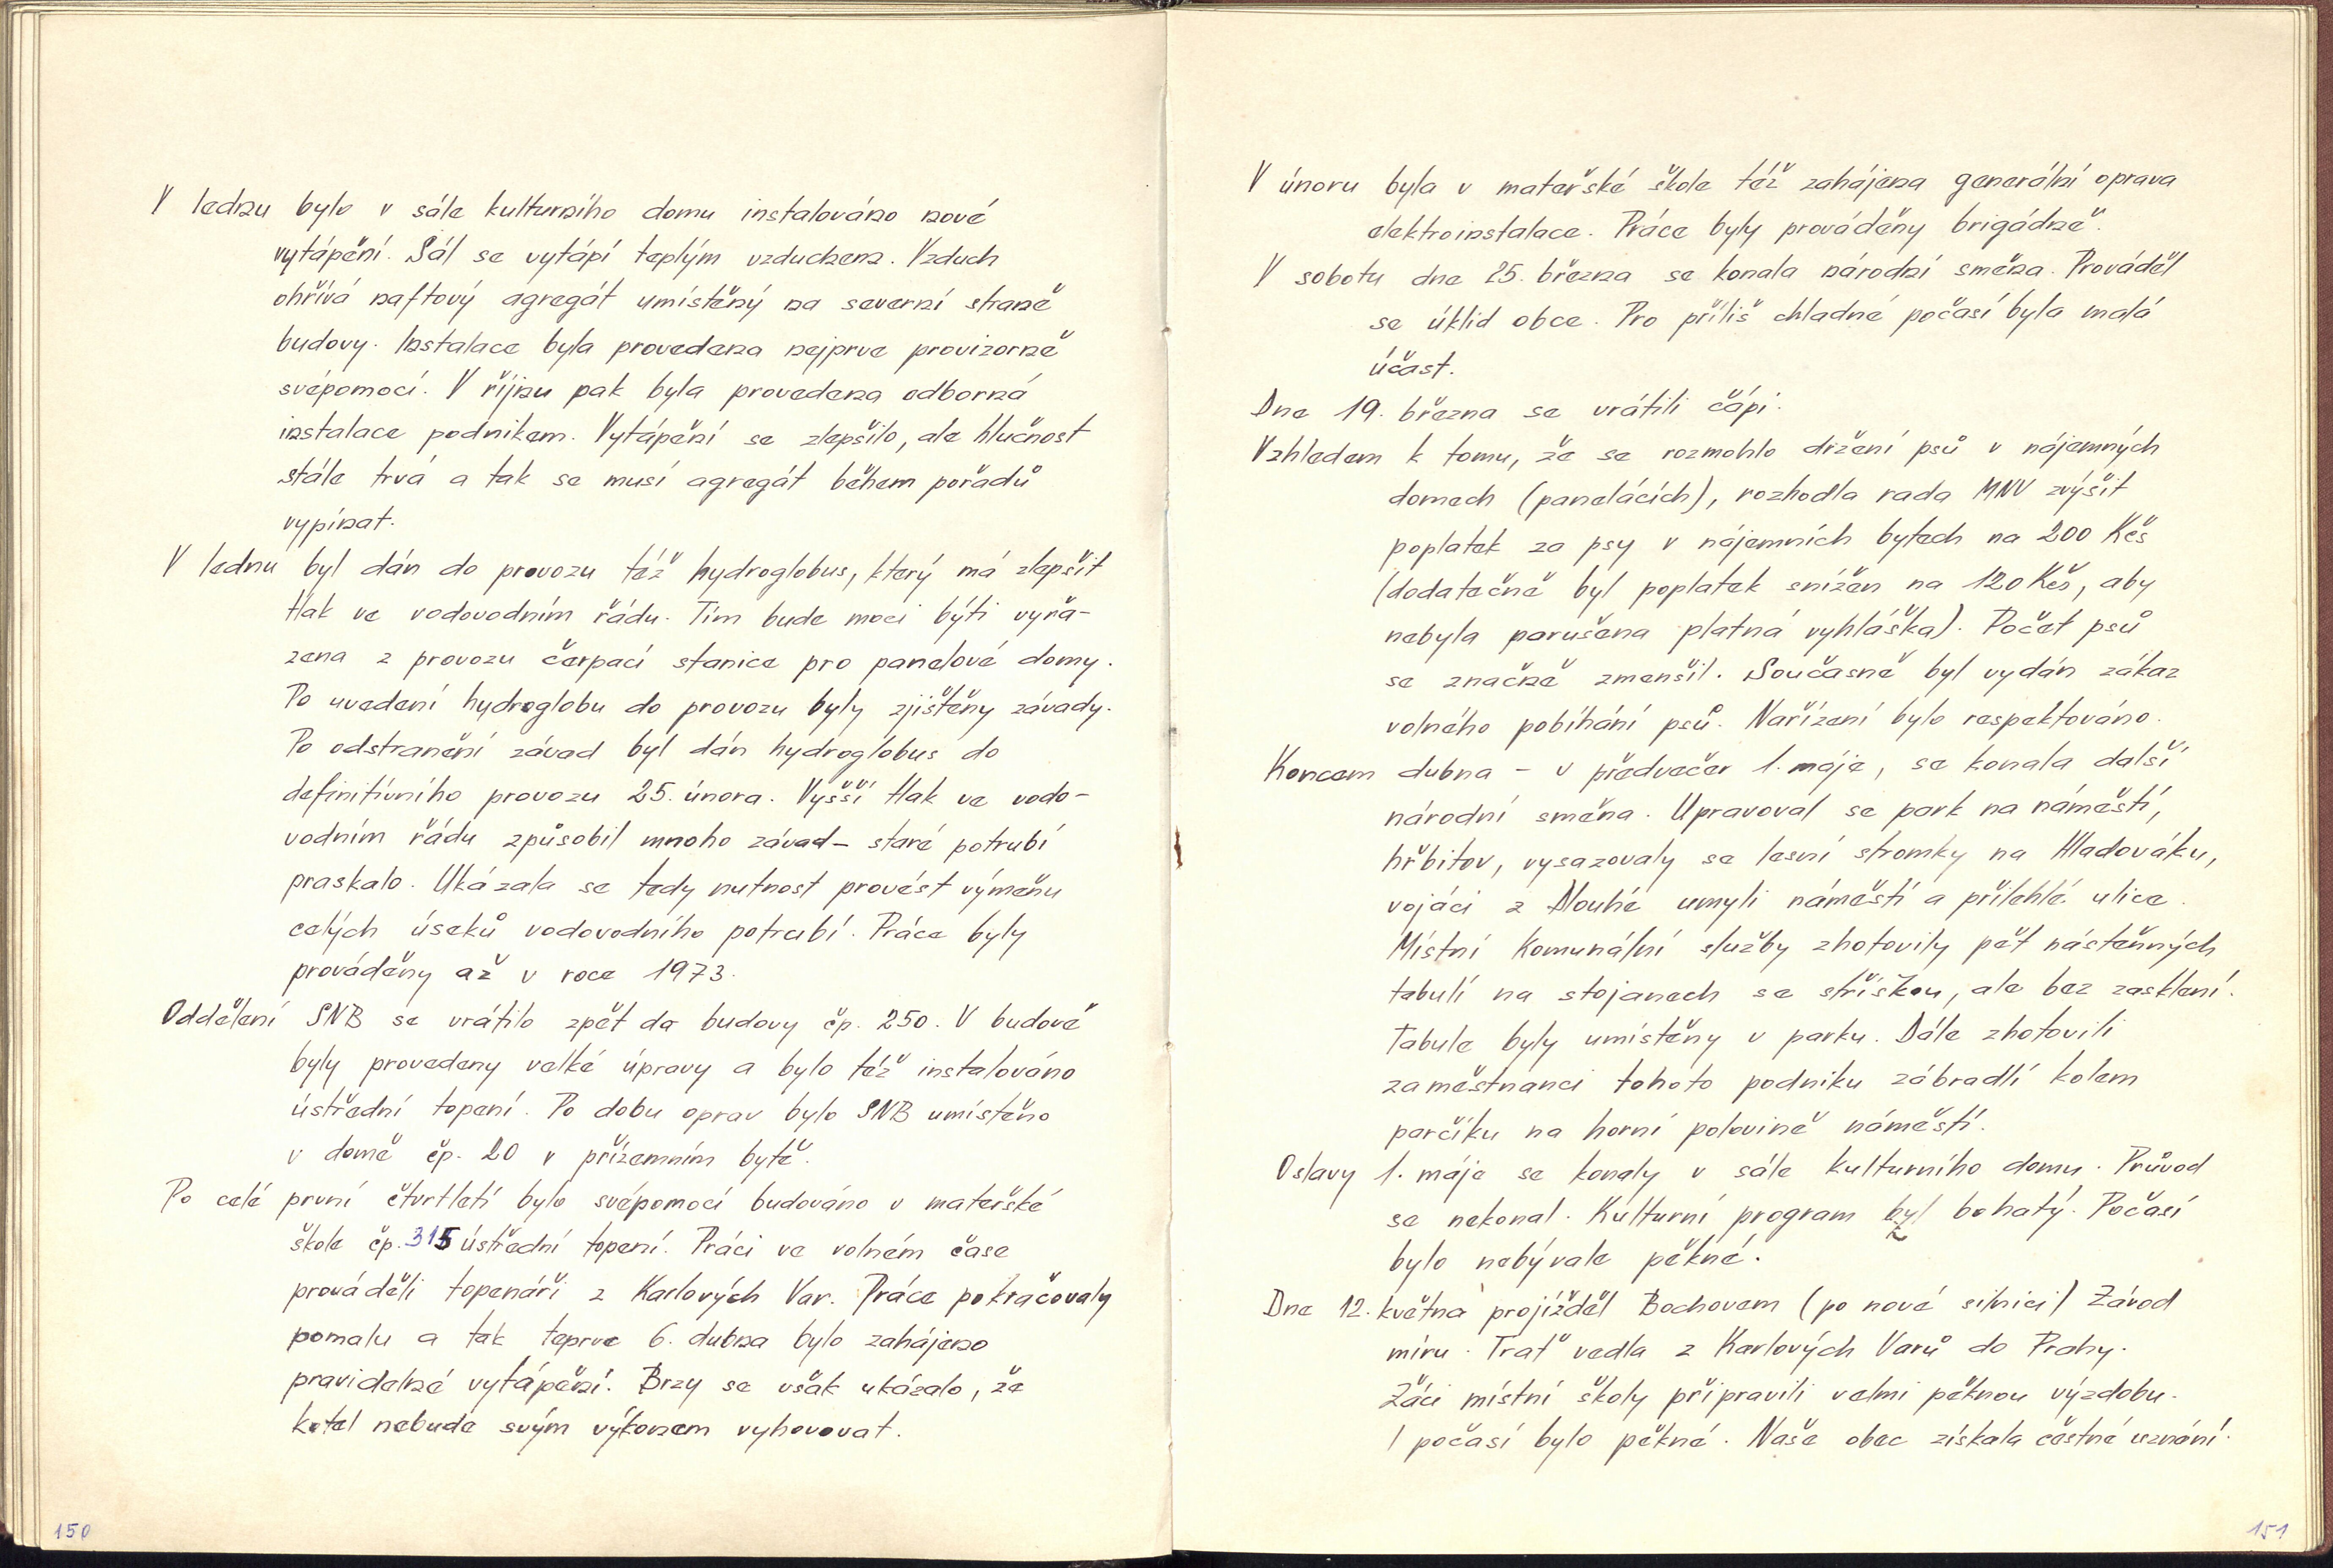 V lednu bylo v sále kulturního domu instalováno nové
vytápění. Sál se vytápí teplým vzduchem. Vzduch
ohřívá naftový agregát umístěný na severní straně
budovy. Instalace byla provedena nejprve provizorně
svépomocí. V říjnu pak byla provedena odborná
instalace podnikem. Vytápění se zlepšilo, ale hlučnost
stále trvá a tak se musí agregát během pořadů
vypínat.
V lednu byl dán do provozu též hydroglobus, který má zlepšit
tlak ve vodovodním řádu. Tím bude moci býti vyřa-
zena z provozu čerpací stanice pro panelové domy.
Po uvedení hydroglobu do provozu byly zjištěny závady.
Po odstranění závad byl dán hydroglobus do
definitivního provozu 25. února. Vyšší tlak ve vodo-
vodním řádu způsobil mnoho závad - staré potrubí
praskalo. Ukázala se tedy nutnost provést výměnu
celých úseků vodovodního potrubí. Práce byly
prováděny až v roce 1973.
Oddělení SNB se vrátilo zpět do budovy čp. 250. V budově
byly provedeny velké úpravy a bylo též instalováno
ústřední topení. Po dobu oprav bylo SNB umístěno
v domě čp. 20 v přízemním bytě.
Po celé první čtvrtletí bylo svépomocí budováno v mateřské
škole čp. 315 ústřední topení. Práci ve volném čase
prováděli topenáři z Karlových Var. Práce pokračovaly
pomalu a tak teprve 6. dubna bylo zahájeno
pravidelné vytápění. Brzy se však ukázalo, že
kotel nebude svým výkonem vyhovovat.
150
V únoru byla v mateřské škole též zahájena generální oprava
elektroinstalace. Práce byly prováděny brigádně.
V sobotu dne 25. března se konala národní směna. Prováděl
se úklid obce. Pro příliš chladné počasí byla malá
účast.
Dne 19. března se vrátili čápi.
Vzhledem k tomu, že se rozmohlo držení psů v nájemných
domech (panelácích), rozhodla rada MNV zvýšit
poplatek za psy v nájemních bytech na 200 Kčs
(dodatečně byl poplatek snížen na 120 Kčs, aby
nebyla porušena platná vyhláška). Počet psů
se značně zmenšil. Současně byl vydán zákaz
volného pobíhání psů. Nařízení bylo respektováno.
Koncem dubna - v předvečer 1. máje, se konala další
národní směna. Upravoval se park na náměstí,
hřbitov, vysazovaly se lesní stromky na Hladováku,
vojáci z Dlouhé umyli náměstí a přilehlé ulice.
Místní Komunální služby zhotovily pět nástěnných
tabulí na stojanech se stříškou, ale bez zasklení.
Tabule byly umístěny v parku. Dále zhotovili
zaměstnanci tohoto podniku zábradlí kolem
parčíku na horní polovině náměstí.
Oslavy 1. máje se konaly v sále kulturního domu. Průvod
se nekonal. Kulturní program byl bohatý. Počasí
bylo nebývale pěkné.
Dne 12. května projížděl Bochovem (po nové silnici) Závod
míru. Trať vedla z Karlových Varů do Prahy.
Žáci místní školy připravili velmi pěknou výzdobu.
I počasí bylo pěkné. Naše obec získala čestné uznání.
151